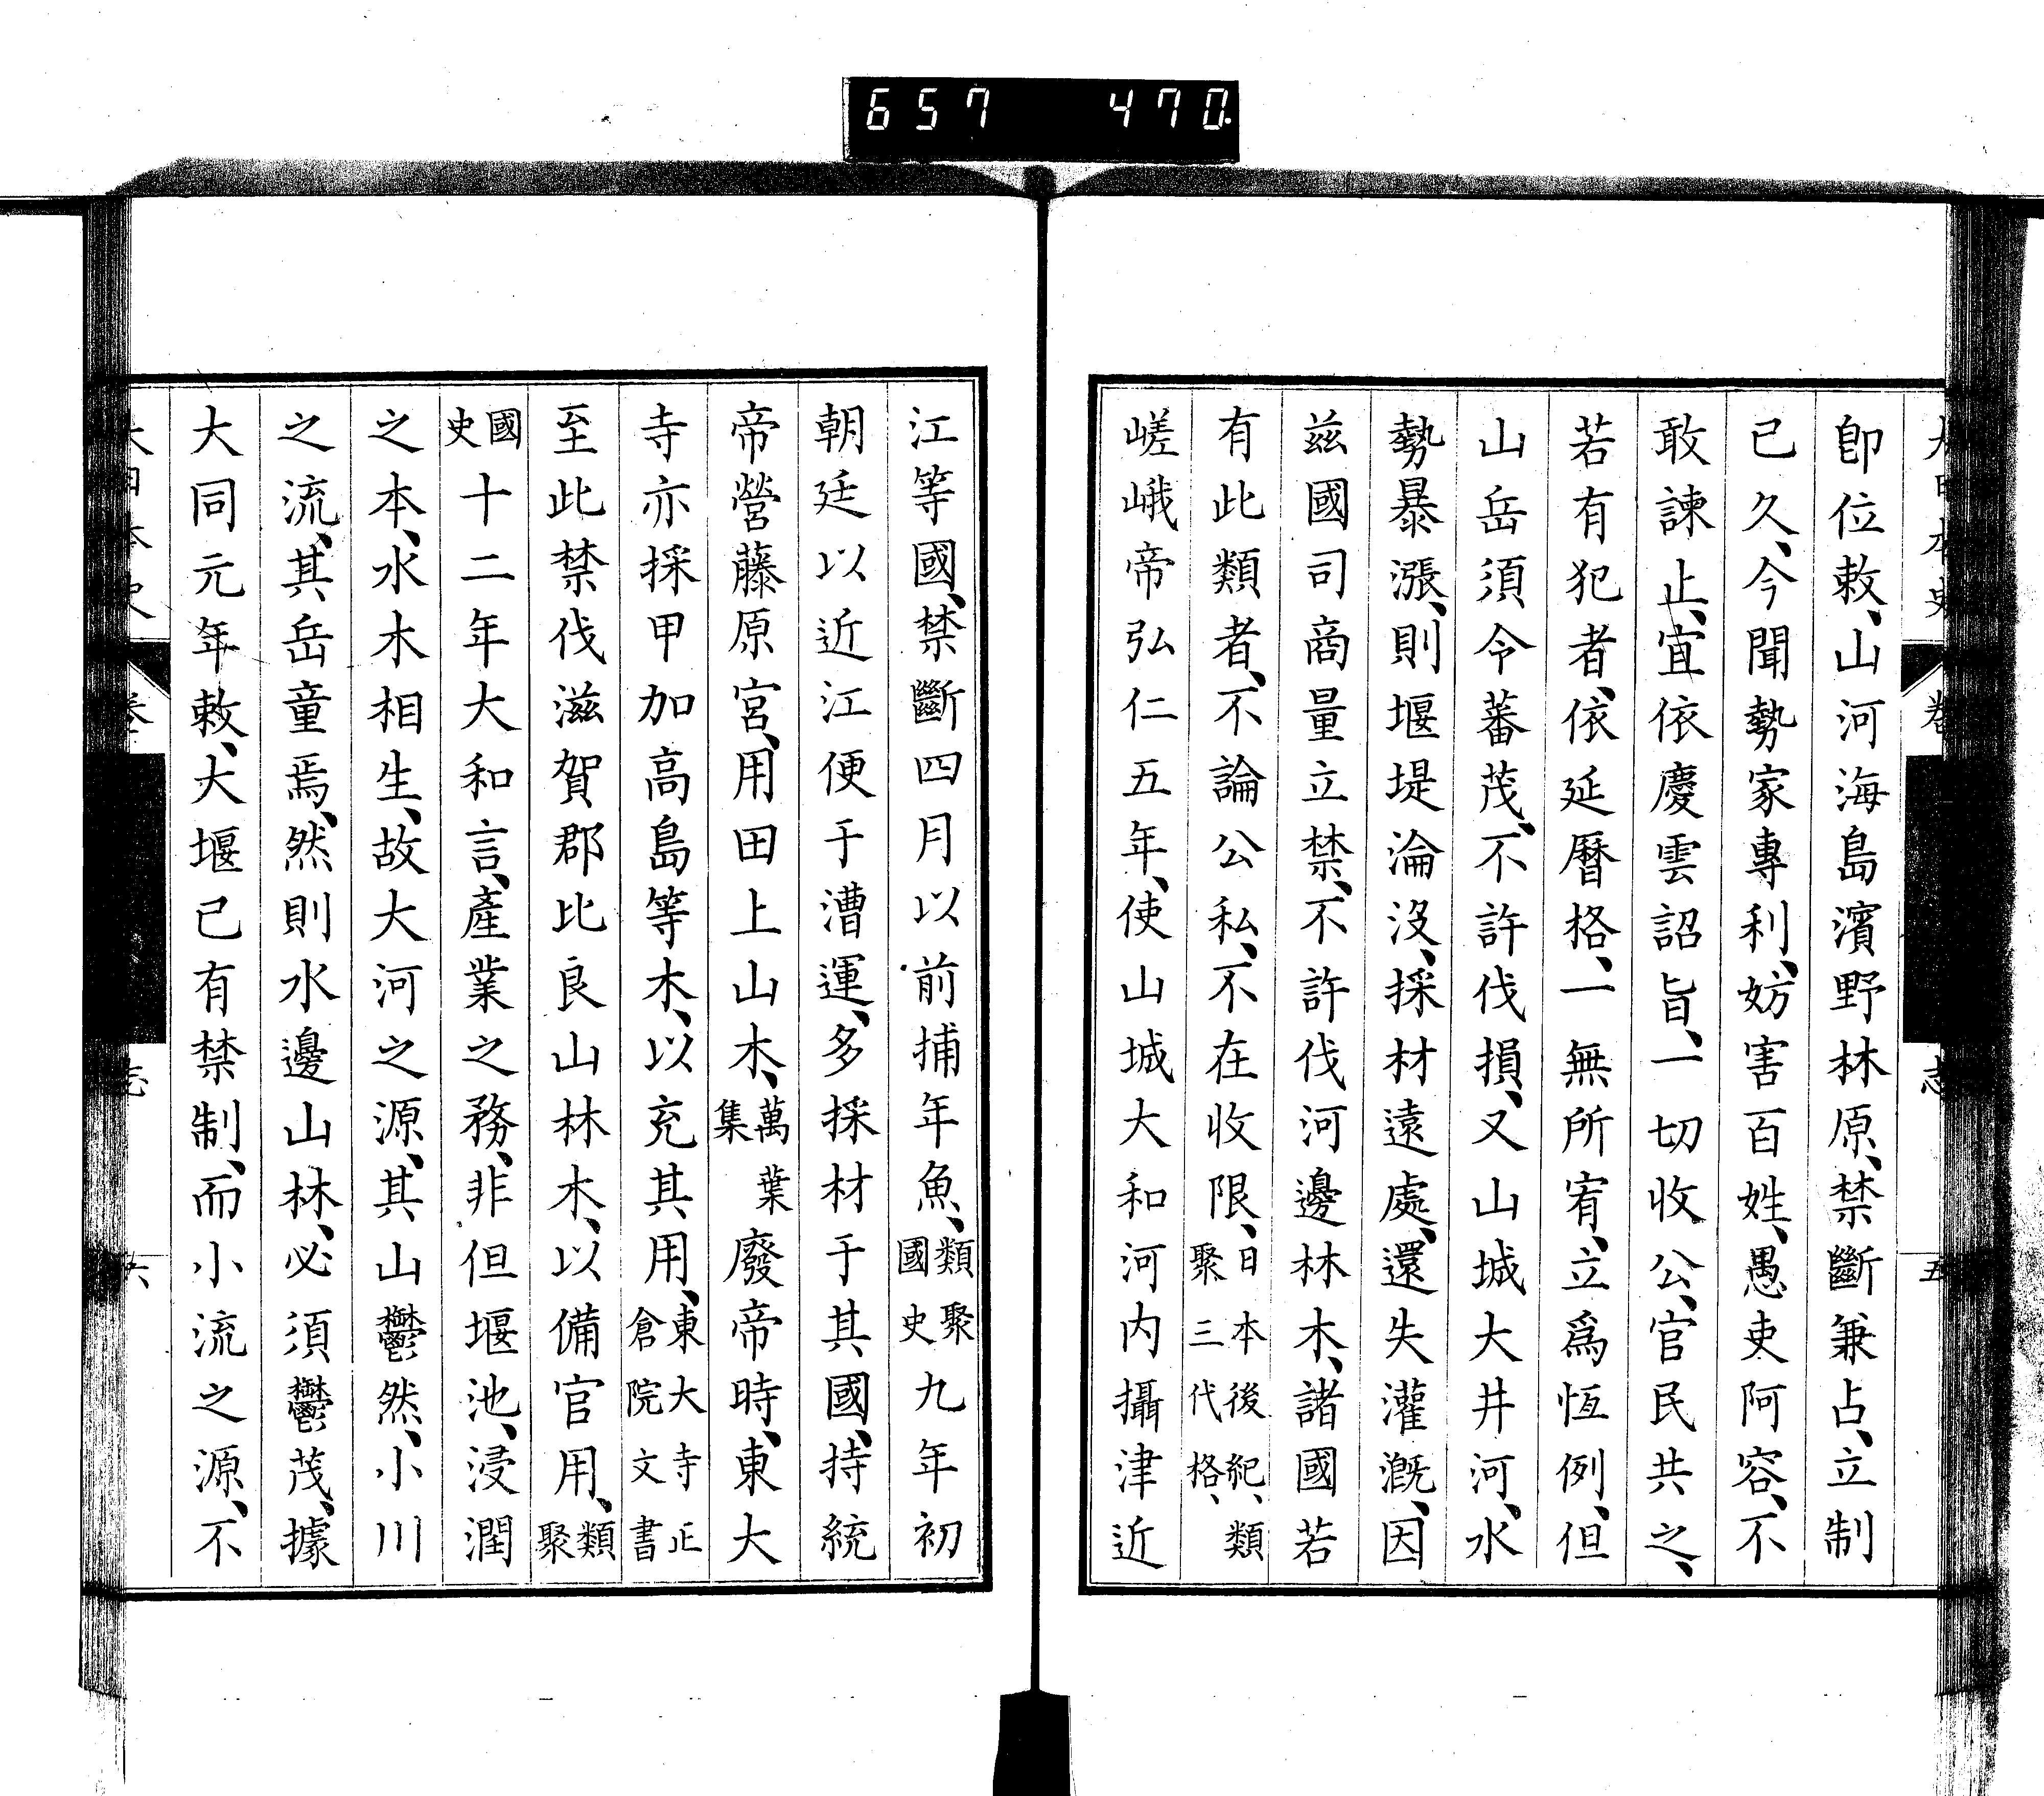 657 470
大日本史 卷 志 五
卽位敕、山河海島濱野林原、禁斷兼占、立制
已久、今聞勢家專利、妨害百姓、愚吏阿容、不
敢諫止、宜依慶雲詔旨、一切收公、官民共之、
若有犯者、依延曆格、一無所宥、立爲恆例、但
山岳須令蕃茂、不許伐損、又山城大井河、水
勢暴漲、則堰堤淪沒、採材遠處、還失灌漑、因
茲國司商量立禁、不許伐河邊林木、諸國若
有此類者、不論公私、不在收限、日本後紀、類聚三代格、
嵯峨帝弘仁五年、使山城大和河内攝津近
江等國、禁斷四月以前捕年魚、類聚國史九年初
朝廷以近江便于漕運、多採材于其國、持統
帝營藤原宮、用田上山木、萬葉集廢帝時、東大
寺亦採甲加高島等木、以充其用、東大寺正倉院文書
至此禁伐滋賀郡比良山林木、以備官用、類聚
國史十二年大和言、產業之務、非但堰池、浸潤
之本、水木相生、故大河之源、其山鬱然、小川
之流、其岳童焉、然則水邊山林、必須鬱茂、據
大同元年敕、大堰已有禁制、而小流之源、不
大日本史 卷 志 六